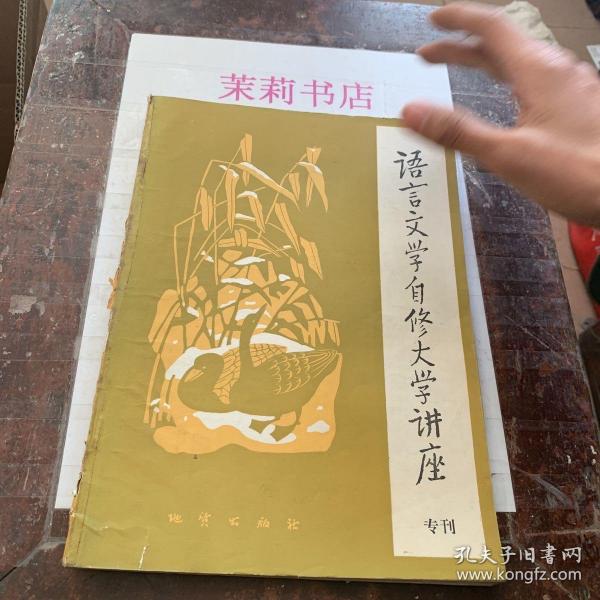 茉莉书店
语言文学自修大学讲座
专刊
地质出版社
孔夫子旧书网
www.kongfz.com